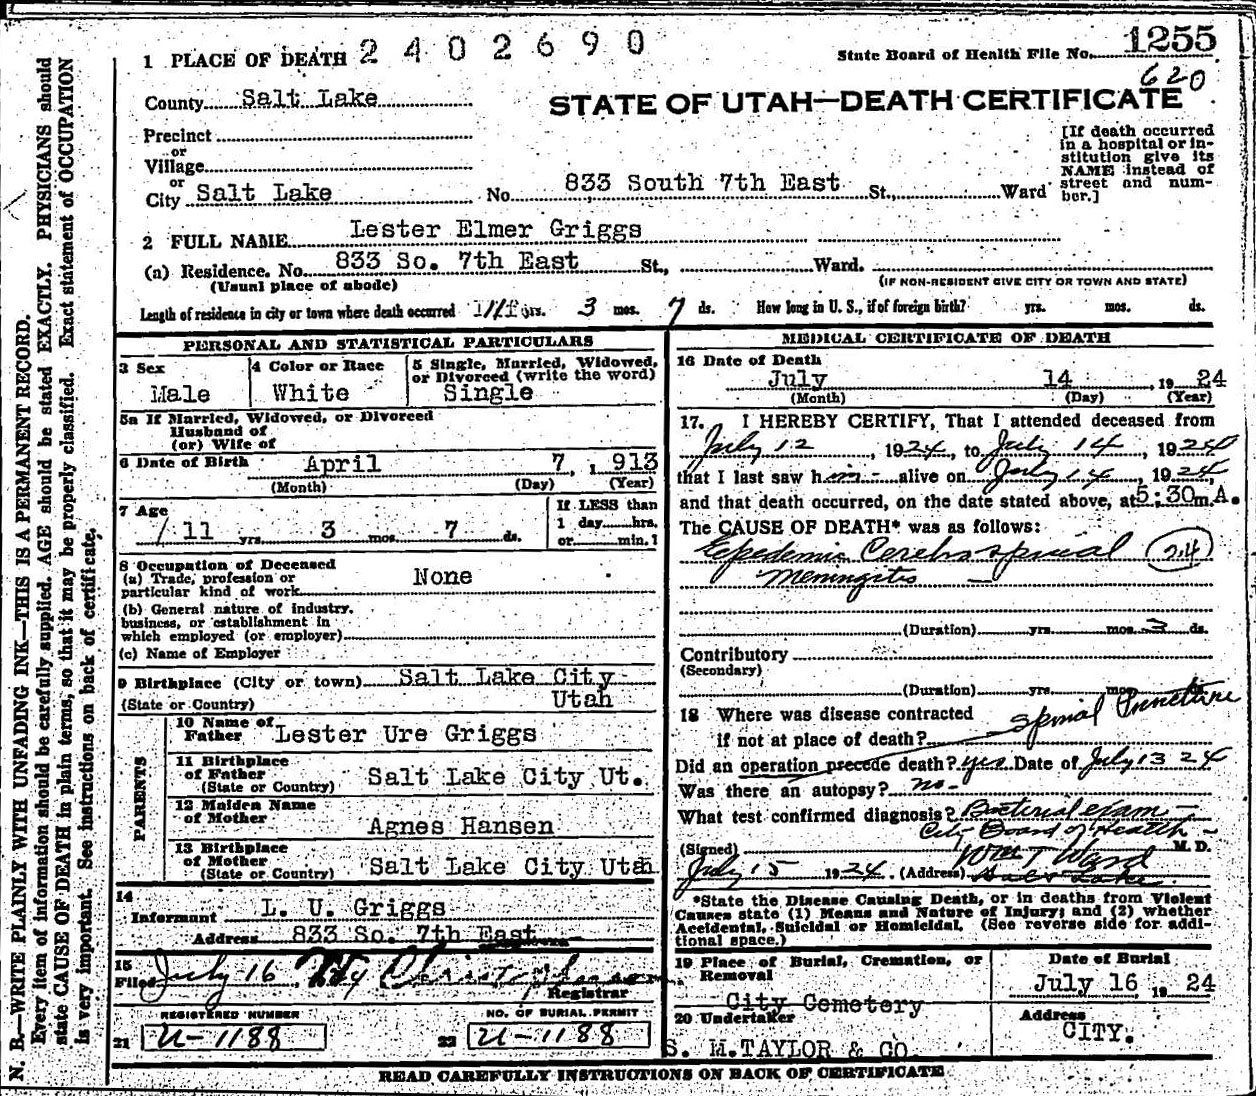 2402690
State Board of Health File No. 1255
620
1 PLACE OF DEATH
County Salt Lake
STATE OF UTAH—DEATH CERTIFICATE
Precinct
or
Village
or
City Salt Lake No. 833 South 7th East St., Ward
[If death occurred
in a hospital or in-
stitution give its
NAME instead of
street and num-
ber.]
2 FULL NAME Lester Elmer Griggs
(a) Residence. No. 833 So. 7th East St., Ward.
(Usual place of abode)
(IF NON-RESIDENT GIVE CITY OR TOWN AND STATE)
Length of residence in city or town where death occurred yrs. 3 mos. 7 ds. How long in U. S., if of foreign birth? yrs. mos. ds.
PERSONAL AND STATISTICAL PARTICULARS
3 Sex
Male
4 Color or Race
White
5 Single, Married, Widowed,
or Divorced (write the word)
Single
5a If Married, Widowed, or Divorced
Husband of
(or) Wife of
6 Date of Birth April 7, 1913
(Month) (Day) (Year)
7 Age
11 yrs. 3 mos. 7 ds.
If LESS than
1 day hrs.
or min.
8 Occupation of Deceased
(a) Trade, profession or
particular kind of work None
(b) General nature of industry,
business, or establishment in
which employed (or employer)
(c) Name of Employer
9 Birthplace (City or town) Salt Lake City
(State or Country) Utah
PARENTS
10 Name of
Father Lester Ure Griggs
11 Birthplace
of Father
(State or Country) Salt Lake City Ut.
12 Maiden Name
of Mother
Agnes Hansen
13 Birthplace
of Mother
(State or Country) Salt Lake City Utah
14
Informant L. U. Griggs
Address 833 So. 7th East
15
Filed July 16,
Registrar
REGISTERED NUMBER
21 U-1188
NO. OF BURIAL PERMIT
22 U-1188
MEDICAL CERTIFICATE OF DEATH
16 Date of Death
July 14, 1924
(Month) (Day) (Year)
17. I HEREBY CERTIFY, That I attended deceased from
July 12, 1924, to July 14, 1924
that I last saw him alive on July 14, 1924,
and that death occurred, on the date stated above, at 5:30 m. A.
The CAUSE OF DEATH* was as follows:
Eepedemic Cerebrospinal (24)
Meningitis
(Duration) yrs. mos. 3 ds.
Contributory
(Secondary)
(Duration) yrs. mos. ds.
18 Where was disease contracted
if not at place of death?
Spinal Puncture
Did an operation precede death? yes Date of July 13 24
Was there an autopsy? no
What test confirmed diagnosis? Bacterial exam
City Board of Health
(Signed) Wm T Ward M. D.
July 15 1924. (Address) Salt Lake.
*State the Disease Causing Death, or in deaths from Violent
Causes state (1) Means and Nature of Injury; and (2) whether
Accidental, Suicidal or Homicidal. (See reverse side for addi-
tional space.)
19 Place of Burial, Cremation, or
Removal
City Cemetery
Date of Burial
July 16, 1924
20 Undertaker
S. M. TAYLOR & CO.
Address
CITY.
READ CAREFULLY INSTRUCTIONS ON BACK OF CERTIFICATE
N. B.—WRITE PLAINLY WITH UNFADING INK—THIS IS A PERMANENT RECORD.
Every item of information should be carefully supplied. AGE should be stated EXACTLY. PHYSICIANS should
state CAUSE OF DEATH in plain terms, so that it may be properly classified. Exact statement of OCCUPATION
is very important. See instructions on back of certificate.